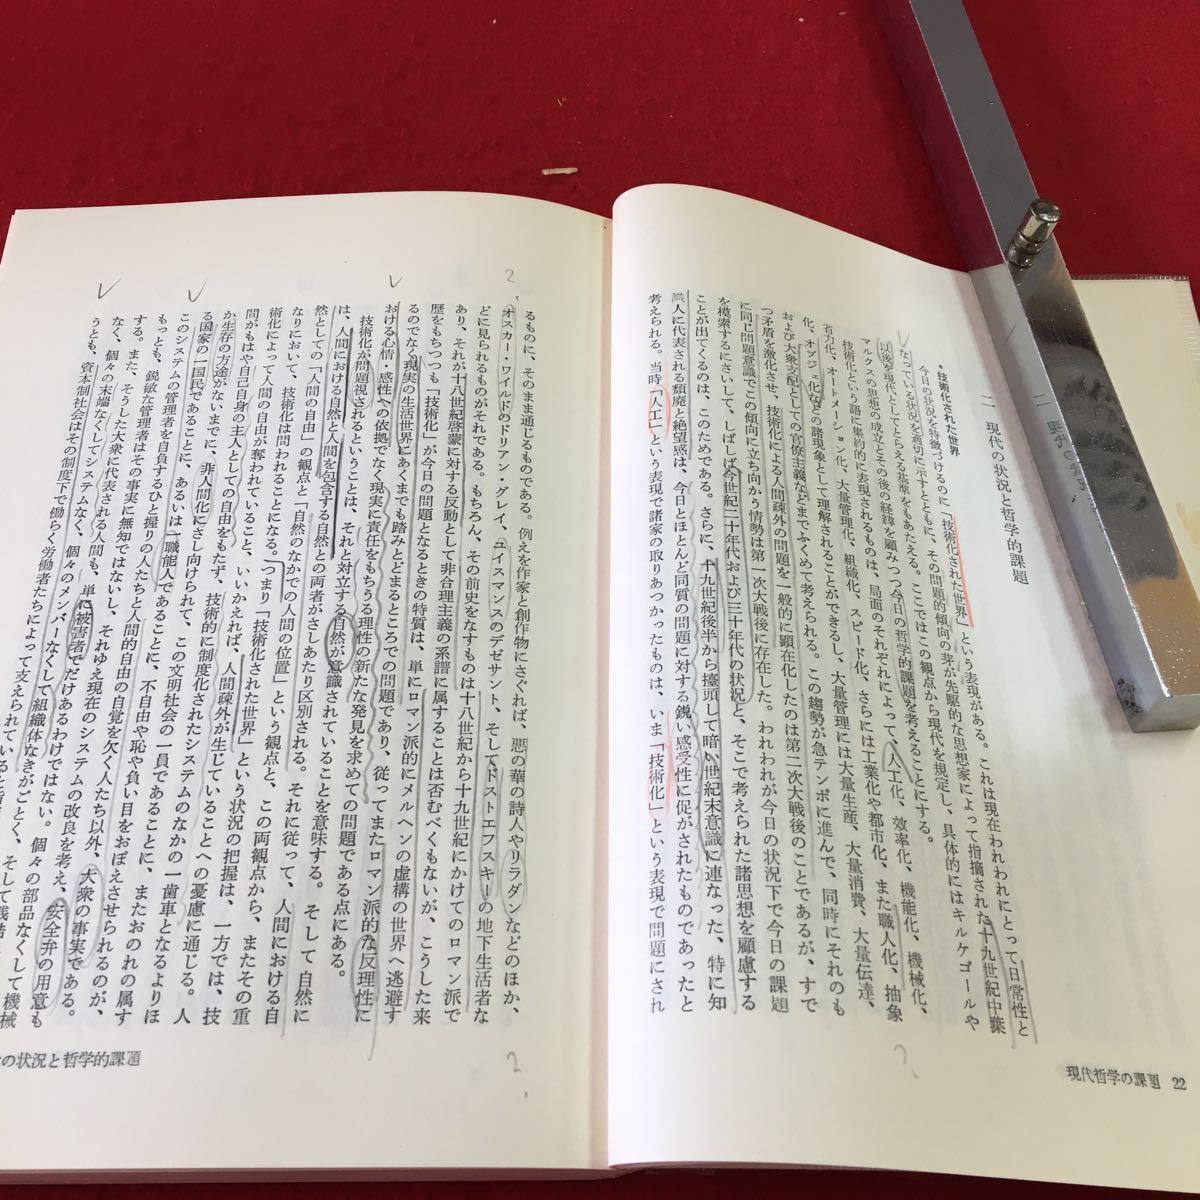 二 現代の状況と哲学的課題
*技術化された世界
今日の状況を特徴づけるのに「技術化された世界」という表現がある。これは現在われわれにとって日常性と
なっている状況を適切に示すとともに、その問題的傾向の芽が先駆的な思想家によって指摘された十九世紀中葉
以後を現代としてとらえる基準をもあたえる。ここではこの観点から現代を規定し、具体的にはキルケゴールや
マルクスの思想の成立とその後の経緯を顧みつつ今日の哲学的課題を考えることにする。
技術化という語に集約的に表現されるものは、局面のそれぞれによって、人工化、効率化、機能化、機械化、
有力化、オートメーション化、大量管理化、組織化、スピード化、さらには工業化や都市化、また職人化、抽象
化、オブジェ化などの諸現象として理解されることができるし、大量管理には大量生産、大量消費、大量伝達、
および大衆支配としての官僚主義などまでふくめて考えられる。この趨勢が急テンポに進んで、同時にそれのも
つ矛盾を激化させ、技術化による人間疎外の問題を一般的に顕在化したのは第二次大戦後のことであるが、すで
に同じ問題意識でこの傾向に立ち向かう情勢は第一次大戦後に存在した。われわれが今日の状況下で今日の課題
を模索するにさいして、しばしば今世紀二十年代および三十年代の状況と、そこで考えられた諸思想を顧慮する
ことが出てくるのは、このためである。さらに、十九世紀後半から擡頭して暗い世紀末意識に連なった、特に知
識人に代表される頽廃と絶望感は、今日とほとんど同質の問題に対する鋭い感受性に促がされたものであったと
考えられる。当時「人工」という表現で諸家の取りあつかったものは、いま「技術化」という表現で問題にされ
現代哲学の課題 22
るものに、そのまま通じるものである。例えを作家と創作物にさぐれば、悪の華の詩人やリラダンなどのほか、
オスカー・ワイルドのドリアン・グレイ、ユイスマンスのデゼサント、そしてドストエフスキーの地下生活者な
どに見られるものがそれである。もちろん、その前史をなすものは十八世紀から十九世紀にかけてのロマン派で
あり、それが十八世紀啓蒙に対する反動として非合理主義の系譜に属することは否むべくもないが、こうした来
歴をもちつつも「技術化」が今日の問題となるときの特質は、単にロマン派的にメルヘンの虚構の世界へ逃避す
るのでなく現実の生活世界にあくまでも踏みとどまるところでの問題であり、従ってまたロマン派的な反理性に
おける心情・感性への依拠でなく現実に責任をもちうる理性の新たな発見を求めての問題である点にある。
技術化が問題視されるということは、それと対立する自然が意識されていることを意味する。そして自然に
は、人間における自然と人間を包含する自然との両者がさしあたり区別される。それに従って、人間における自
然としての「人間の自由」の観点と「自然のなかでの人間の位置」という観点と、この両観点から、またその重
なりにおいて、技術化は問われることになる。つまり「技術化された世界」という状況の把握は、一方では、技
術化によって人間の自由が奪われていること、いいかえれば、人間疎外が生じていることへの憂慮に通じる。人
間がもはや自己自身の主人としての自由をもたず、技術的に制度化されたシステムのなかの一歯車となるよりほ
か生存の方途がないまでに、非人間化にさし向けられて、この文明社会の一員であることに、またおのれの属す
る国家の一国民であることに、あるいは一職能人であることに、不自由や恥や負い目をおぼえさせられるのが、
このシステムの管理者を自負するひと握りの人たちと人間的自由の自覚を欠く人たち以外、大衆の事実である。
もっとも、鋭敏な管理者はその事実に無知ではないし、それゆえ現在のシステムの改良を考え、安全弁の用意も
する。また、そうした大衆に代表される人間も、単に被害者でだけあるわけではない。個々の部品なくして機械
なく、個々の末端なくしてシステムなく、個々のメンバーなくして組織体なきがごとく、そして
うとも、資本制社会はその制度下で働らく労働者たちによって支えられていると
の状況と哲学的課題